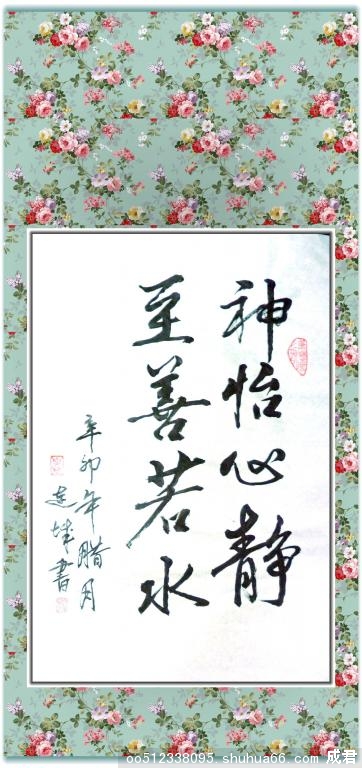 神怡心静
至善若水
辛卯年腊月
oo512338095 shuhua66.com 成君